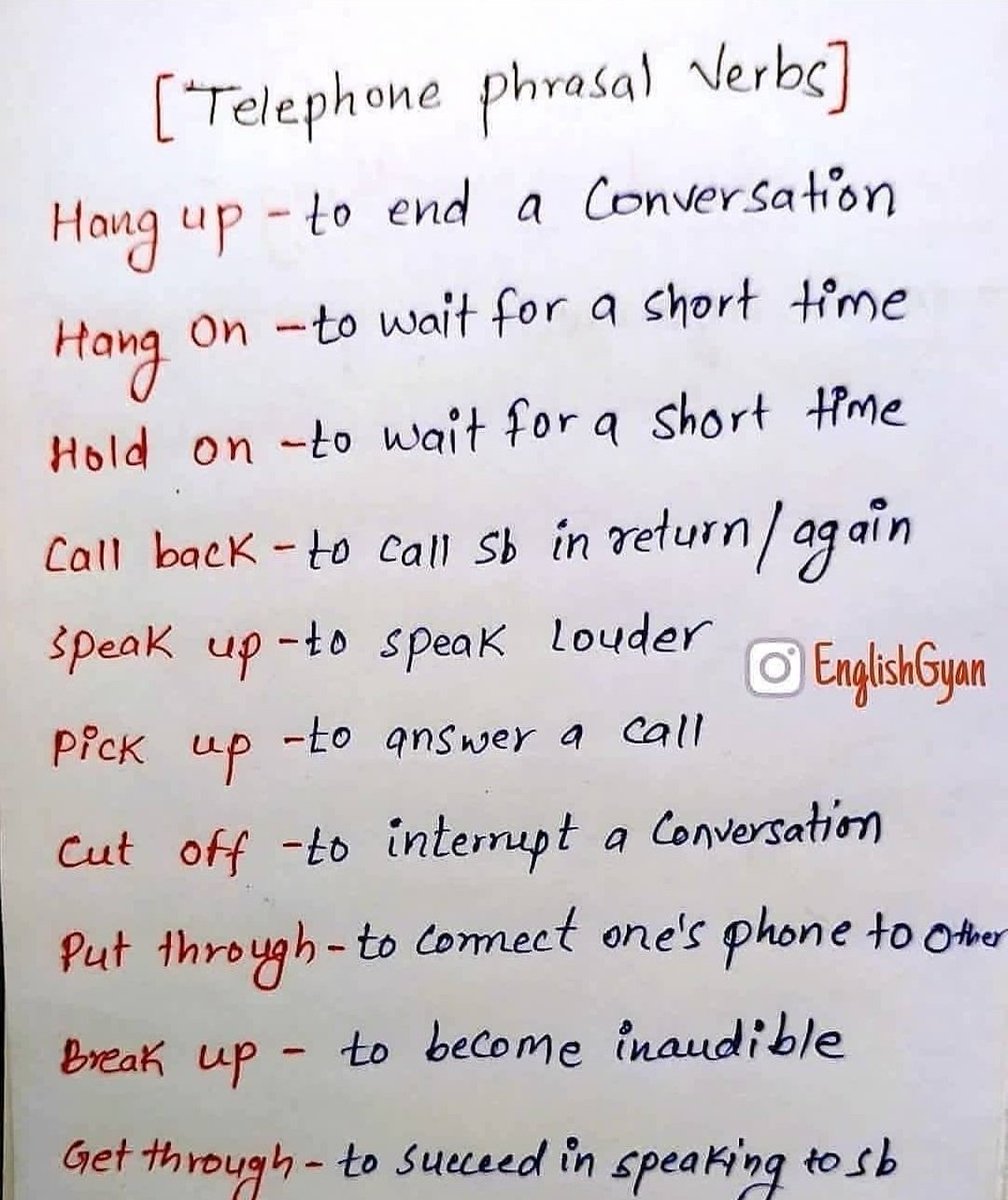 [Telephone phrasal Verbs]
Hang up - to end a Conversation
Hang On - to wait for a short time
Hold on - to wait for a short time
Call back - to call sb in return/again
Speak up - to speak Louder
EnglishGyan
Pick up - to answer a call
Cut off - to interrupt a Conversation
Put through - to connect one's phone to Other
Break up - to become inaudible
Get through - to succeed in speaking to sb